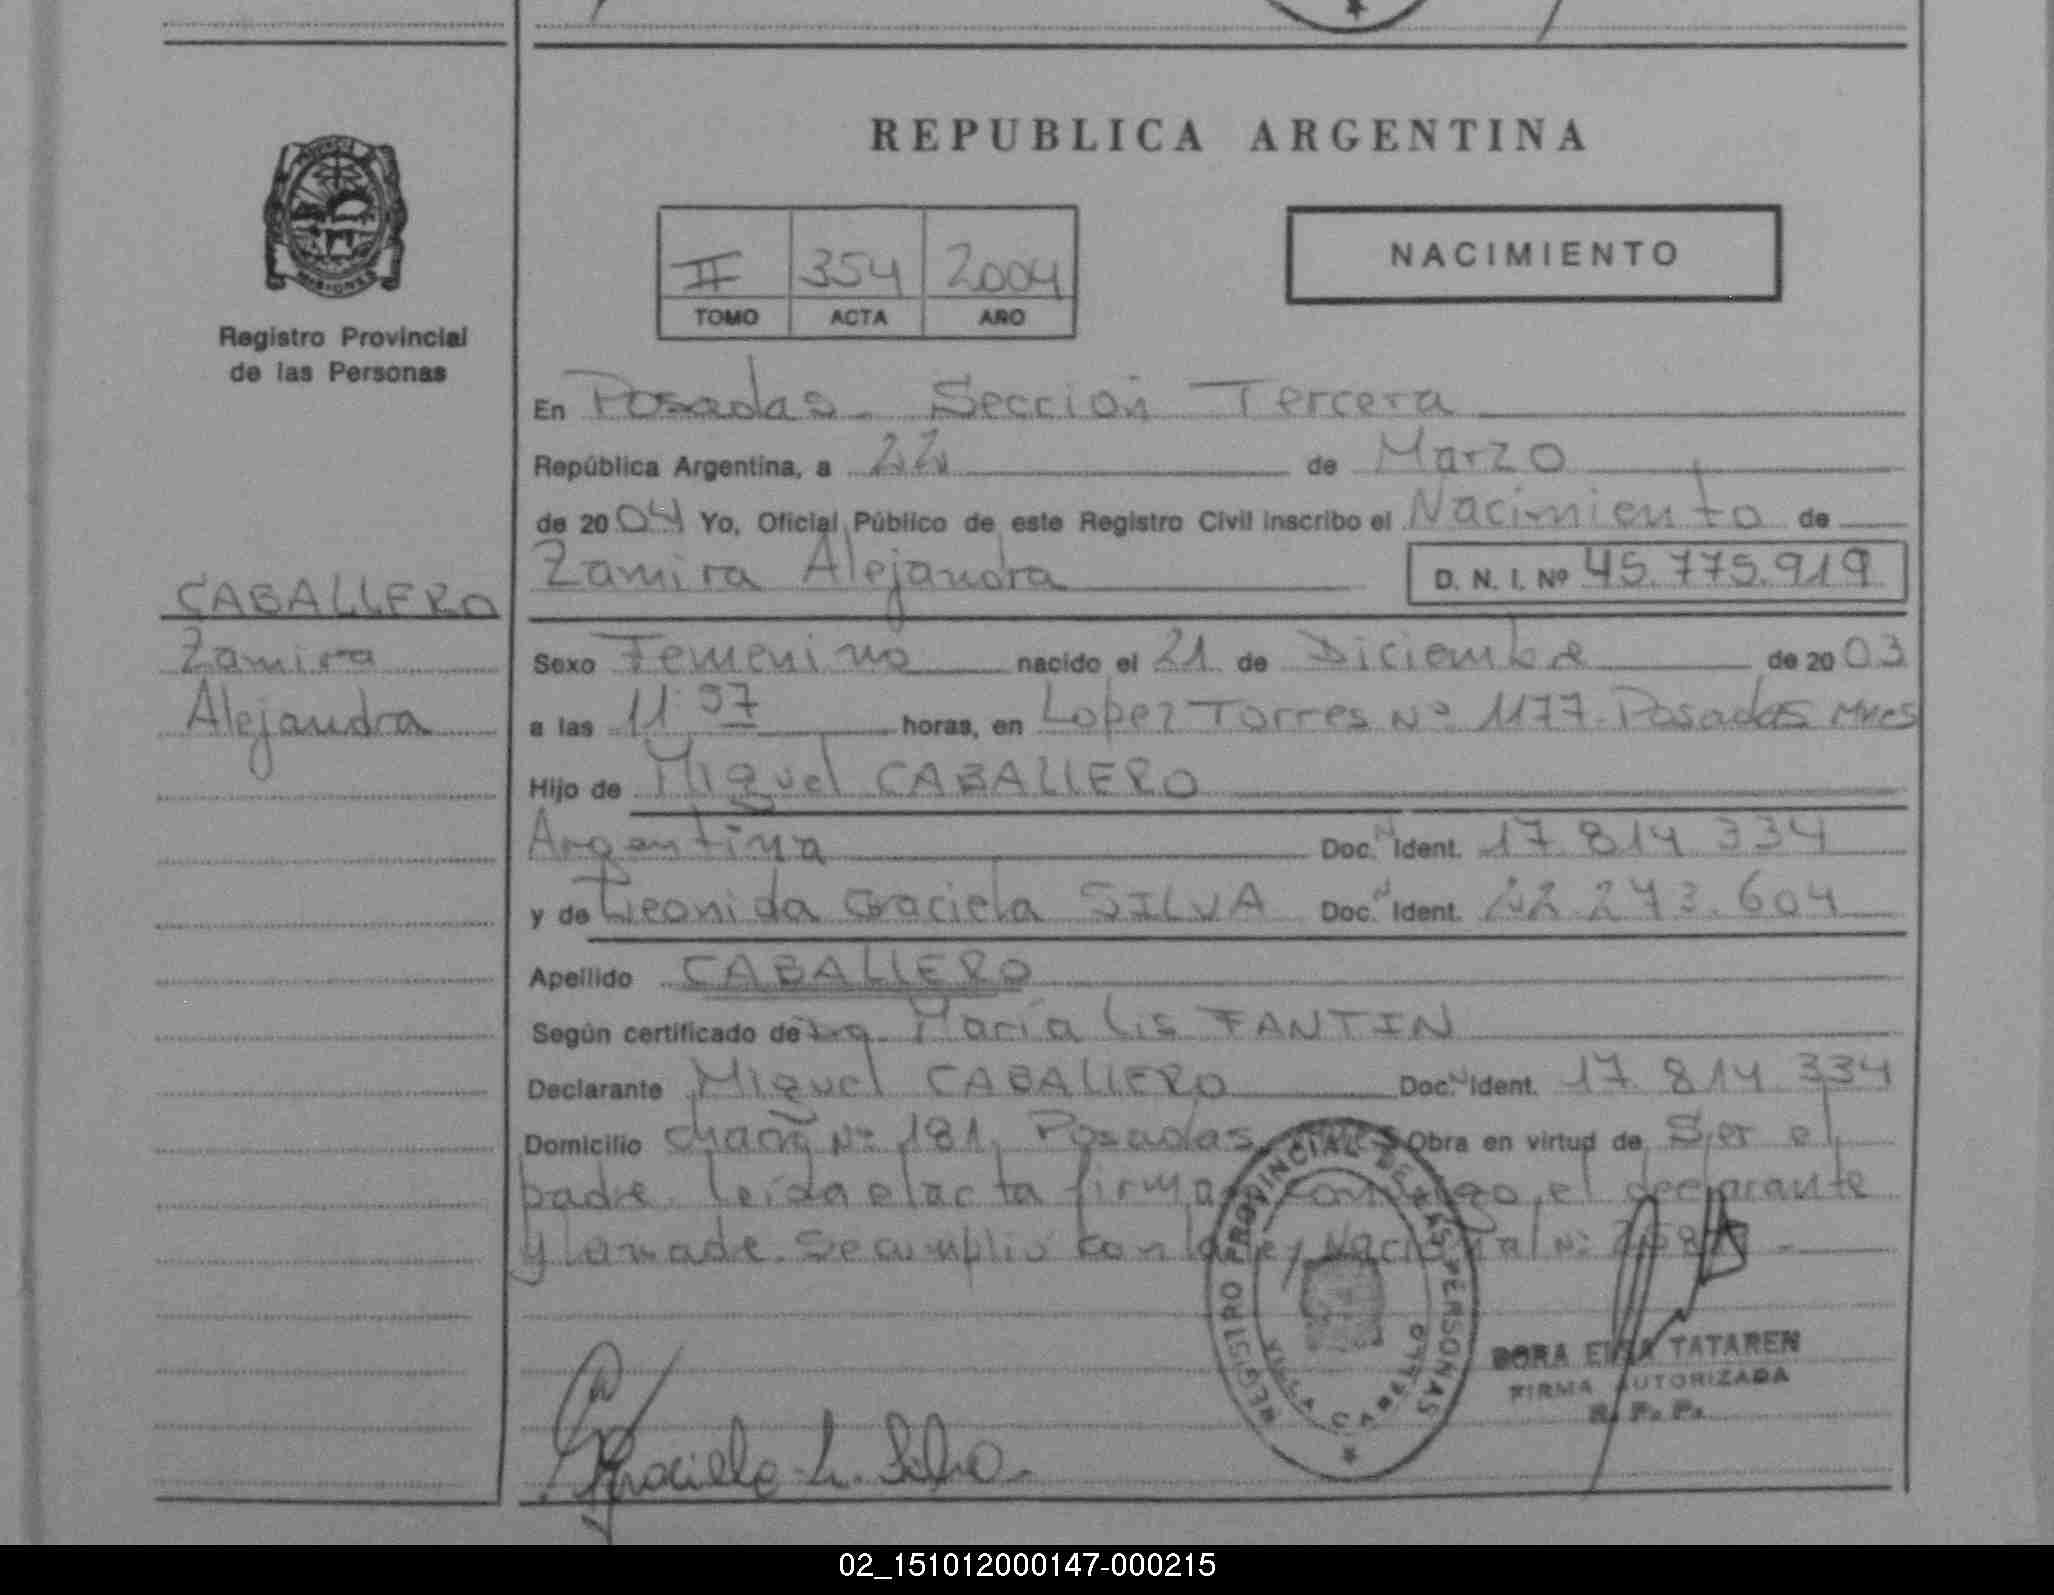 REPUBLICA ARGENTINA
NACIMIENTO
II 354 2004
TOMO ACTA AÑO
Registro Provincial
de las Personas
CABALLERO
Zamira
Alejandra
En Posadas. Sección Tercera
República Argentina, a 22 de Marzo
de 2004 Yo, Oficial Público de este Registro Civil inscribo el Nacimiento de
Zamira Alejandra D. N. I. Nº 45.775.919
Sexo Femenino nacido el 21 de Diciembre de 2003
a las 11:57 horas, en Lopez Torres Nº 1177. Posadas Mnes
Hijo de Miguel CABALLERO
Argentina Doc. Ident. 17.814.334
y de Leonida Graciela SILVA Doc. Ident. 22.273.604
Apellido CABALLERO
Según certificado de Dra. María Lis FANTIN
Declarante Miguel CABALLERO Doc. Ident. 17.814.334
Domicilio Nº 181 Posadas Obra en virtud de Ser el
padre. leída el acta firman conmigo, el declarante
y la madre. Se cumplió con la ley Nacional Nº
REGISTRO PROVINCIAL DE LAS PERSONAS
VILLA CABELLO
Graciela L. Silva
DORA TATAREN
FIRMA AUTORIZADA
R. P. P.
02_151012000147-000215